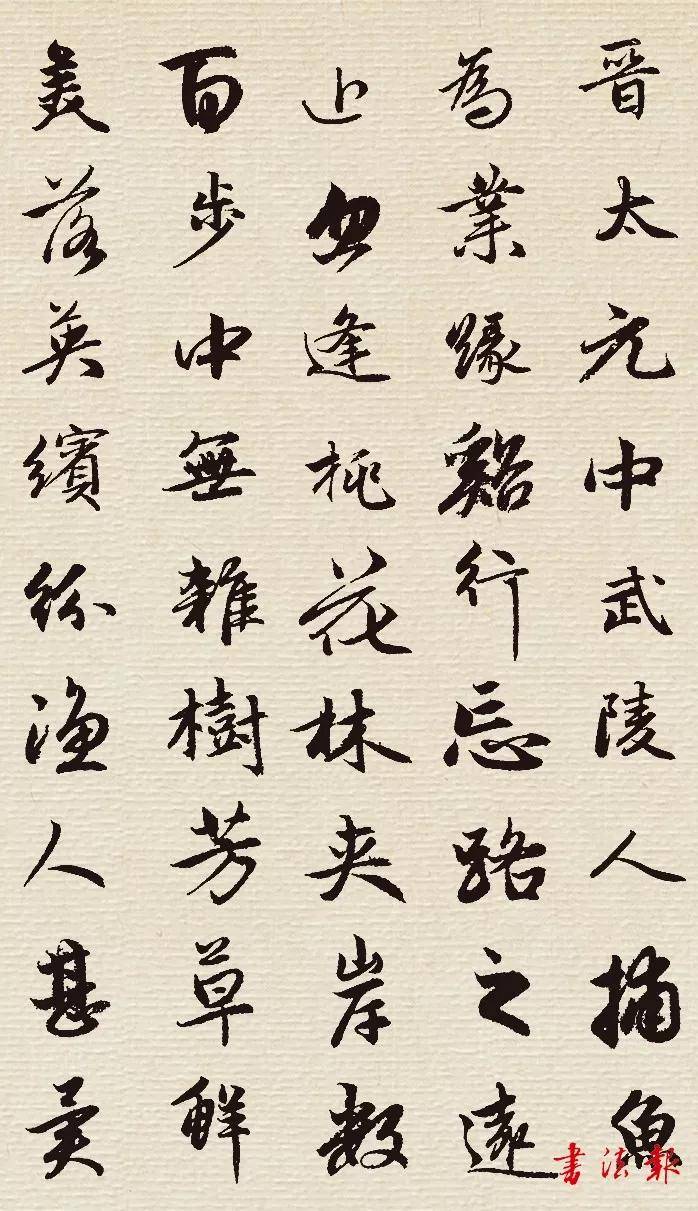 晋太元中武陵人捕魚
為業緣谿行忘路之遠
近忽逢桃花林夹岸數
百步中無雜樹芳草鮮
美落英繽紛渔人甚異
书法報